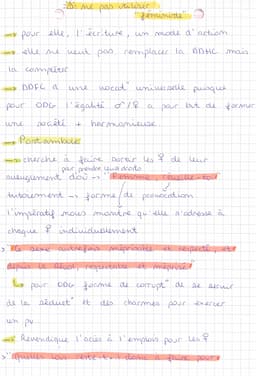 ⚠ ne pas utiliser
"féministe"
→ pour elle, l'écriture, un mode d'action
→ elle ne veut pas remplacer la DDHC mais
la compléter
→ DDFC a une vocat° universelle puisque
pour ODG l'égalité ♂/♀ a pour but de former
une société + harmonieuse.
→ Postambule
→ cherche à faire sortir les ♀ de leur
pour prendre leurs droits
aveuglement d'où → "Femme, réveille-toi"
tutoiement → forme de provocation
l'impératif nous montre qu'elle s'adresse à
chaque ♀ individuellement
> "le sexe autrefois méprisable et respecté, et
depuis la Révol, respectable et méprisé"
↳ pour ODG forme de corrupt° de se servir
de la séduct° et des charmes pour exercer
un pv
→ Revendique l'accès à l'emplois pour les ♀